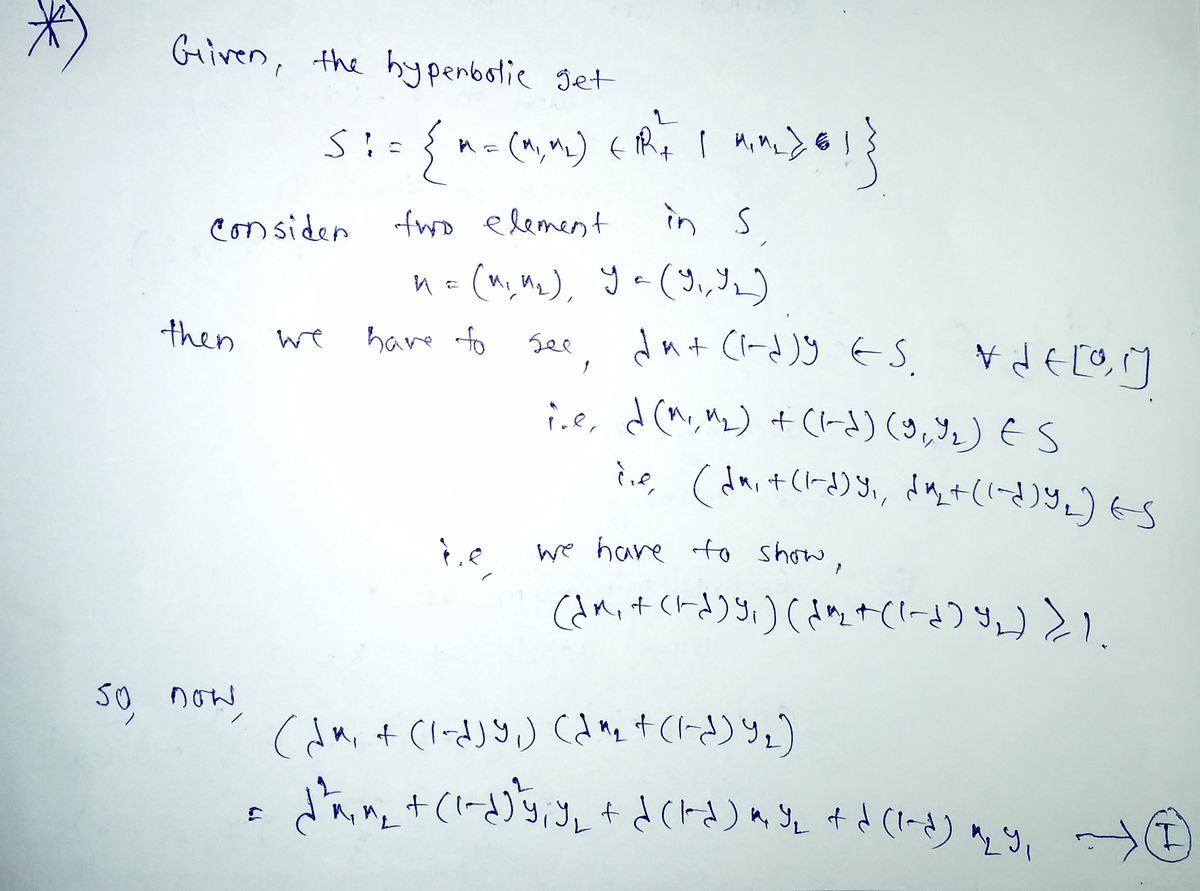 *)
Given, the hyperbolic set
S := { x = (x₁, x₂) ∈ ℝ²₊ | x₁x₂ ≥ 1 }
consider two element in S,
x = (x₁, x₂), y = (y₁, y₂)
then we have to see, λx + (1-λ)y ∈ S. ∀ λ ∈ [0,1].
i.e, λ(x₁, x₂) + (1-λ)(y₁, y₂) ∈ S
i.e, (λx₁ + (1-λ)y₁, λx₂ + (1-λ)y₂) ∈ S
i.e, we have to show,
(λx₁ + (1-λ)y₁)(λx₂ + (1-λ)y₂) ≥ 1.
so, now,
(λx₁ + (1-λ)y₁)(λx₂ + (1-λ)y₂)
= λ²x₁x₂ + (1-λ)²y₁y₂ + λ(1-λ)x₁y₂ + λ(1-λ)x₂y₁ → Ⓘ